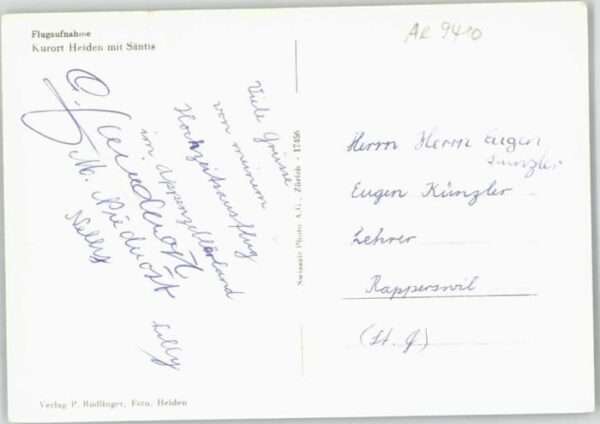 Flugaufnahme
Kurort Heiden mit Säntis
AR 9410
Viele Grüsse
von meinem
Hochzeitsausflug
im Appenzellerland
M. Niederost
Nelly
Lilly
Swissair Photo A.G., Zürich - 17456
Herrn Herrn Eugen
Künzler
Eugen Künzler
Lehrer
Rapperswil
(St. G.)
Verlag P. Rüdlinger, Foto, Heiden